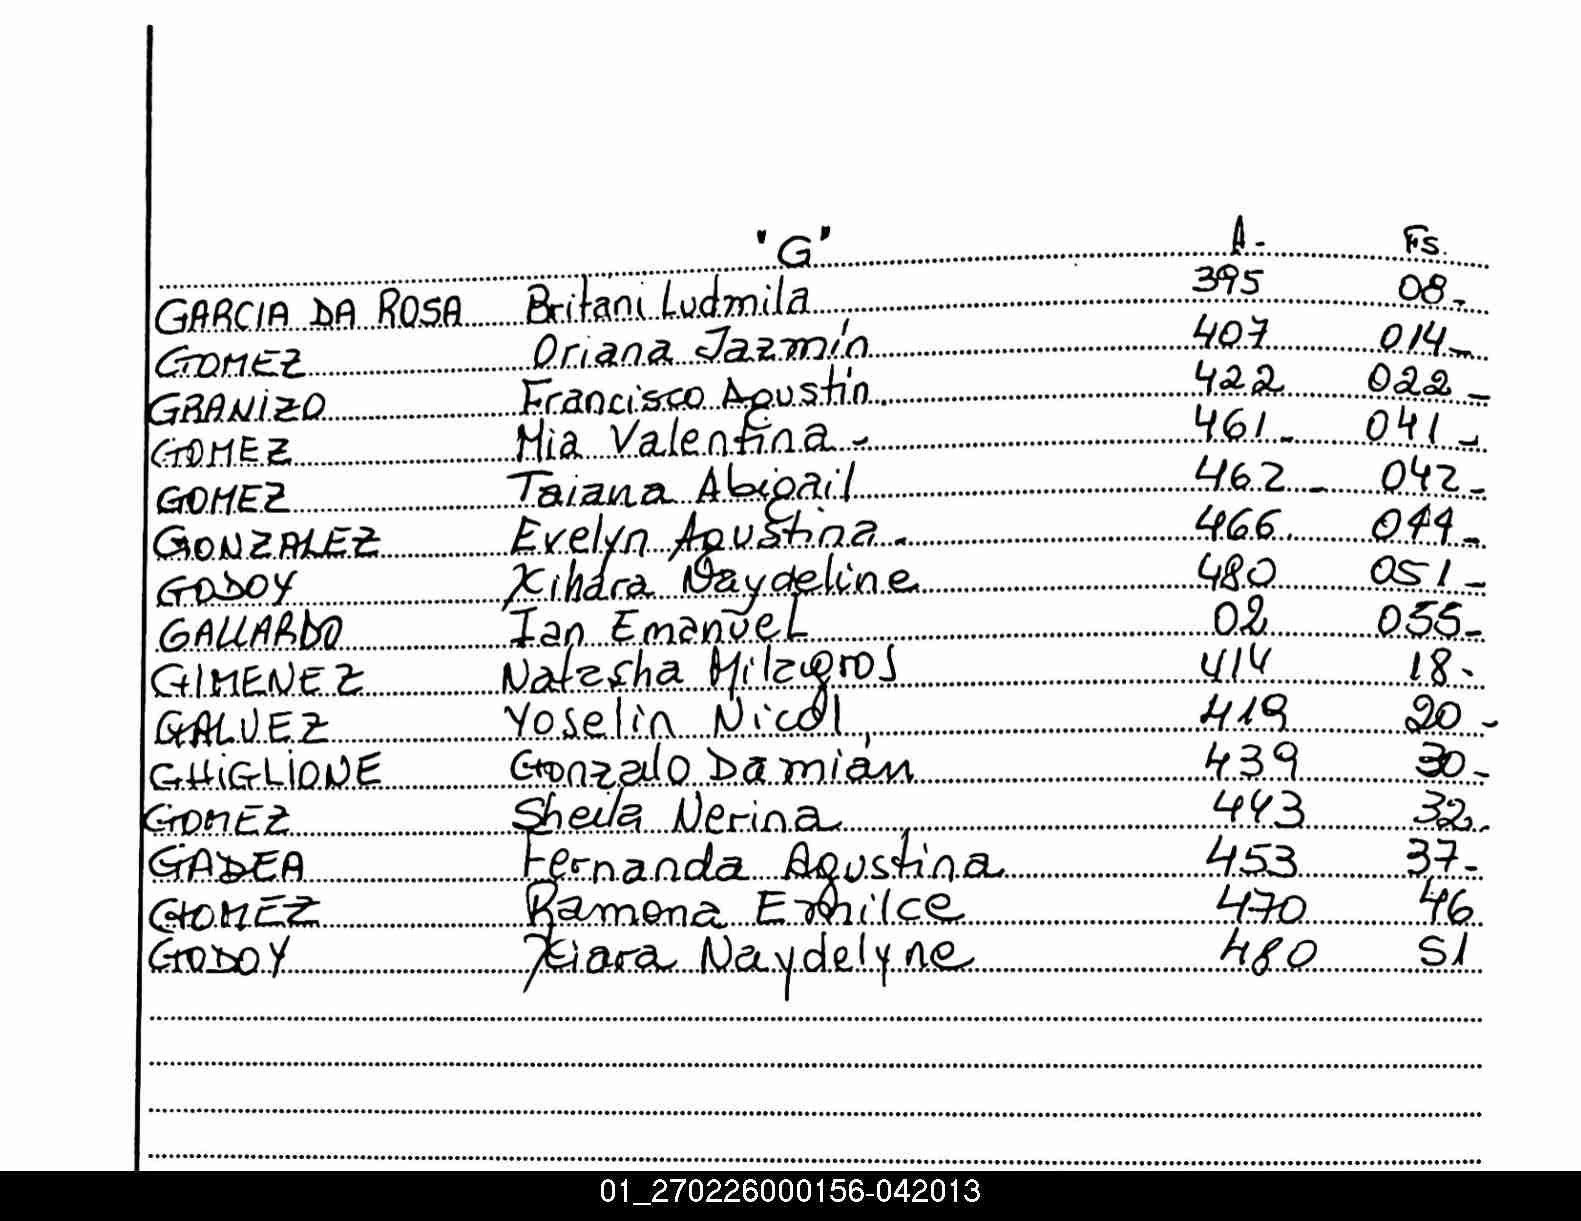 "G" A- Fs.
GARCIA DA ROSA Britani Ludmila 395 08-
GOMEZ Oriana Jazmín 407 014-
GRANIZO Francisco Agustín. 422 022-
GOMEZ Mia Valentina- 461- 041-
GOMEZ Taiana Abigail 462- 042-
GONZALEZ Evelyn Agustina. 466 044-
GODOY Xihara Naydeline 480 051-
GALLARDO Ian Emanuel 02 055-
GIMENEZ Natasha Milagros 414 18-
GALVEZ Yoselin Nicol 419 20-
GHIGLIONE Gonzalo Damián 439 30-
GOMEZ Sheila Nerina 443 32.
GADEA Fernanda Agustina 453 37-
GOMEZ Ramona Ermilce 470 46
GODOY Xiara Naydelyne 480 51
01_270226000156-042013